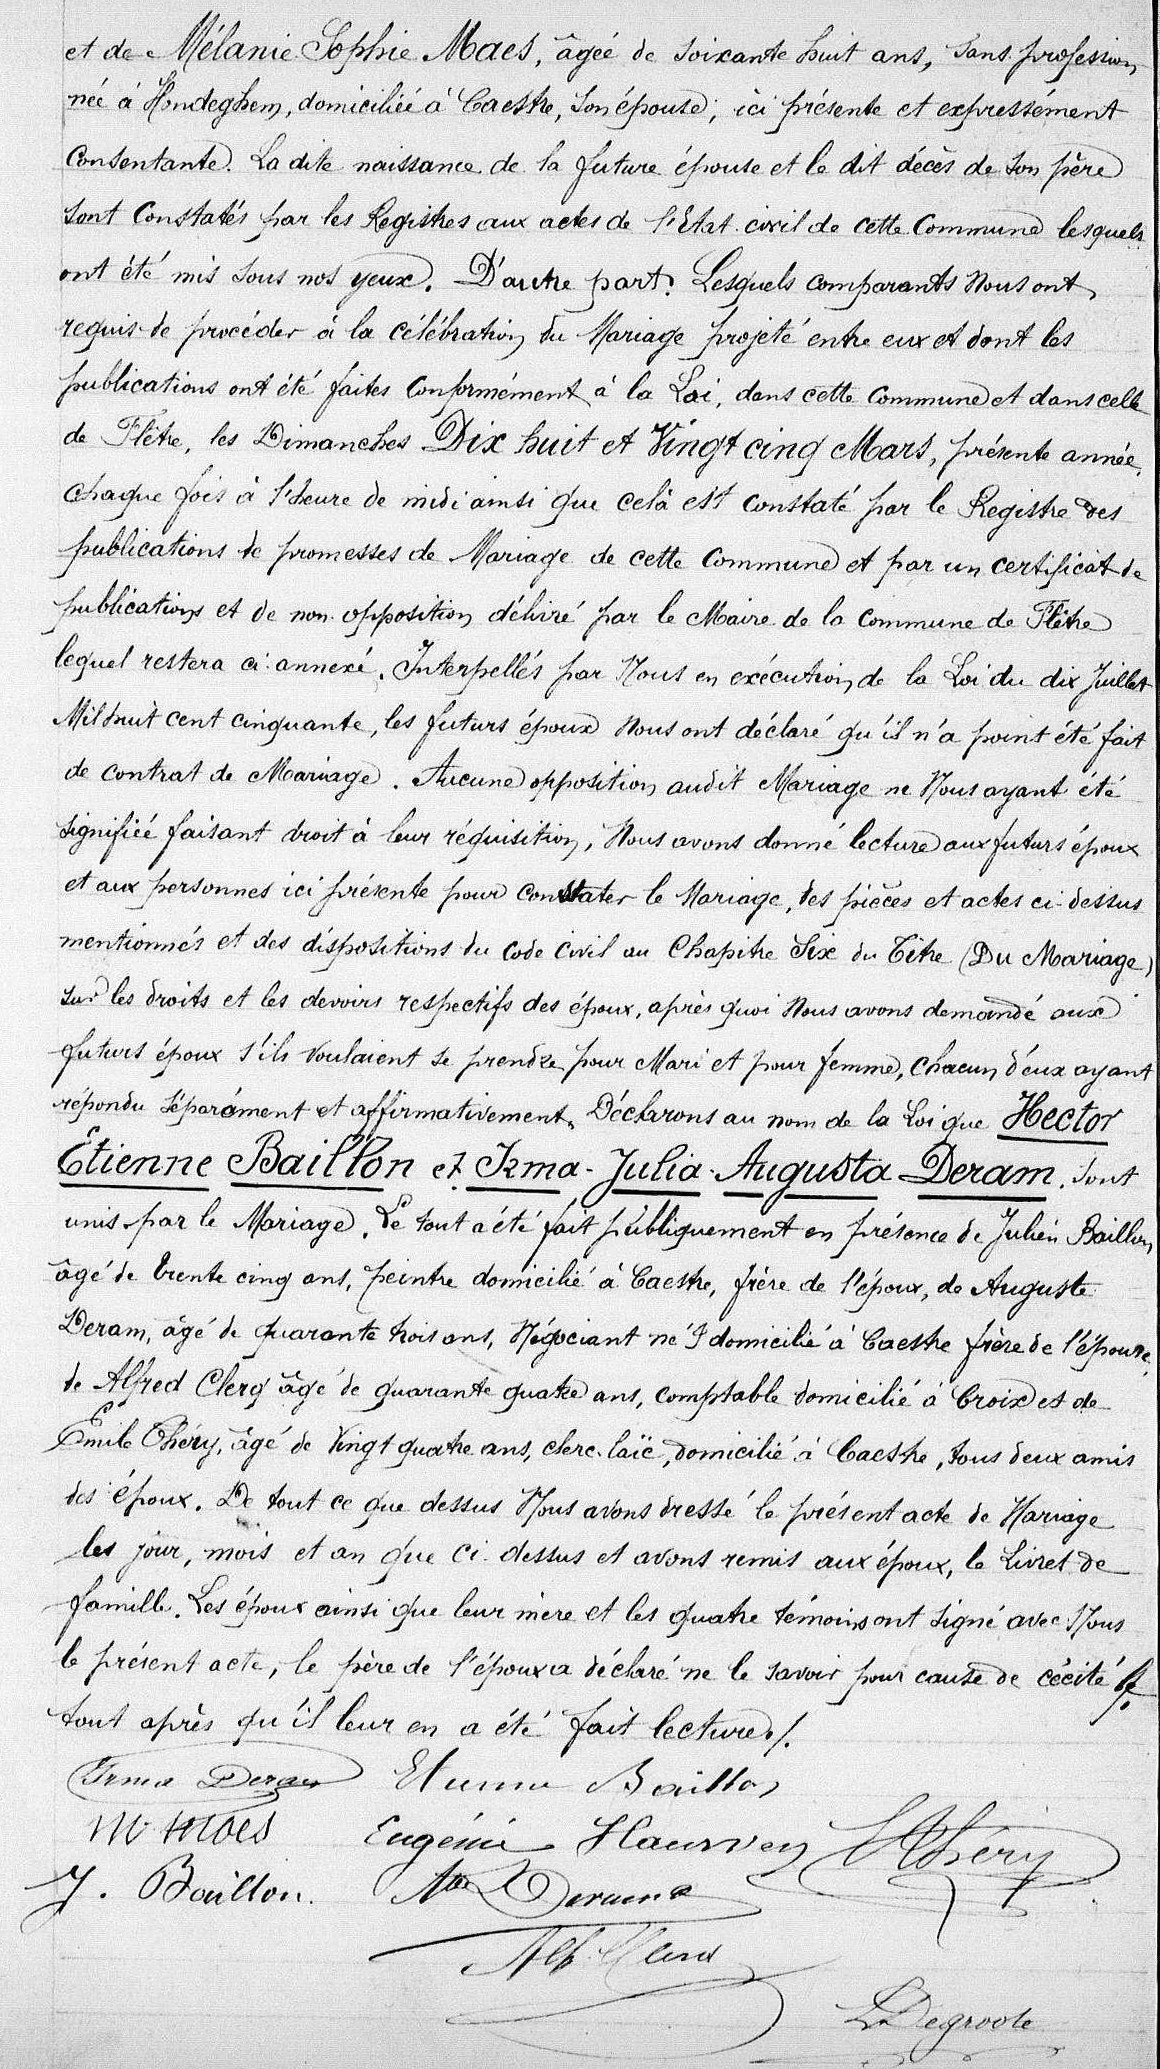 et de Mélanie Sophie Maes, âgée de soixante huit ans, sans profession
née à Hondeghem, domiciliée à Caestre, son épouse, ici présente et expressément
consentante. La dite naissance de la future épouse et le dit décès de son père
sont constatés par les Registres aux actes de l'Etat civil de cette commune lesquels
ont été mis sous nos yeux. D'autre part. Lesquels comparants Nous ont
requis de procéder à la célébration du Mariage projeté entre eux et dont les
publications ont été faites conformément à la Loi, dans cette commune et dans celle
de Flêtre, les Dimanches Dix huit et Vingt cinq Mars, présente année,
chaque fois à l'heure de midi ainsi que celà est constaté par le Registre des
publications de promesses de Mariage de cette commune et par un certificat de
publications et de non opposition délivré par le Maire de la commune de Flêtre
lequel restera ci-annexé. Interpellés par Nous en exécution de la Loi du dix Juillet
Mil huit cent cinquante, les futurs époux Nous ont déclaré qu'il n'a point été fait
de contrat de Mariage. Aucune opposition audit Mariage ne Nous ayant été
signifiée faisant droit à leur réquisition, Nous avons donné lecture aux futurs époux
et aux personnes ici présente pour constater le Mariage, des pièces et actes ci-dessus
mentionnés et des dispositions du code civil au Chapitre Six du Titre (Du Mariage)
sur les droits et les devoirs respectifs des époux, après quoi Nous avons demandé aux
futurs époux s'ils voulaient se prendre pour Mari et pour femme, chacun d'eux ayant
répondu séparément et affirmativement, Déclarons au nom de la Loi que Hector
Etienne Baillon et Irma-Julia-Augusta Deram, sont
unis par le Mariage. Le tout a été fait publiquement en présence de Julien Baillon
âgé de trente cinq ans, peintre domicilié à Caestre, frère de l'époux, de Auguste
Deram, âgé de quarante trois ans, Négociant né & domicilié à Caestre frère de l'épouse,
de Alfred Clerq âgé de quarante quatre ans, comptable domicilié à Croix et de
Emile Théry, âgé de vingt quatre ans, clerc-laïc, domicilié à Caestre, tous deux amis
des époux. De tout ce que dessus Nous avons dressé le présent acte de Mariage
les jour, mois et an que ci-dessus et avons remis aux époux, le Livret de
famille. Les époux ainsi que leur mère et les quatre témoins ont signé avec Nous
le présent acte, le père de l'époux a déclaré ne le savoir pour cause de cécité, le
tout après qu'il leur en a été fait lecture./.
Irma Deram Etienne Baillon
M. Maes Eugénie E Théry
J. Baillon. Aug Deram
Alf. Clerq
L Degroote